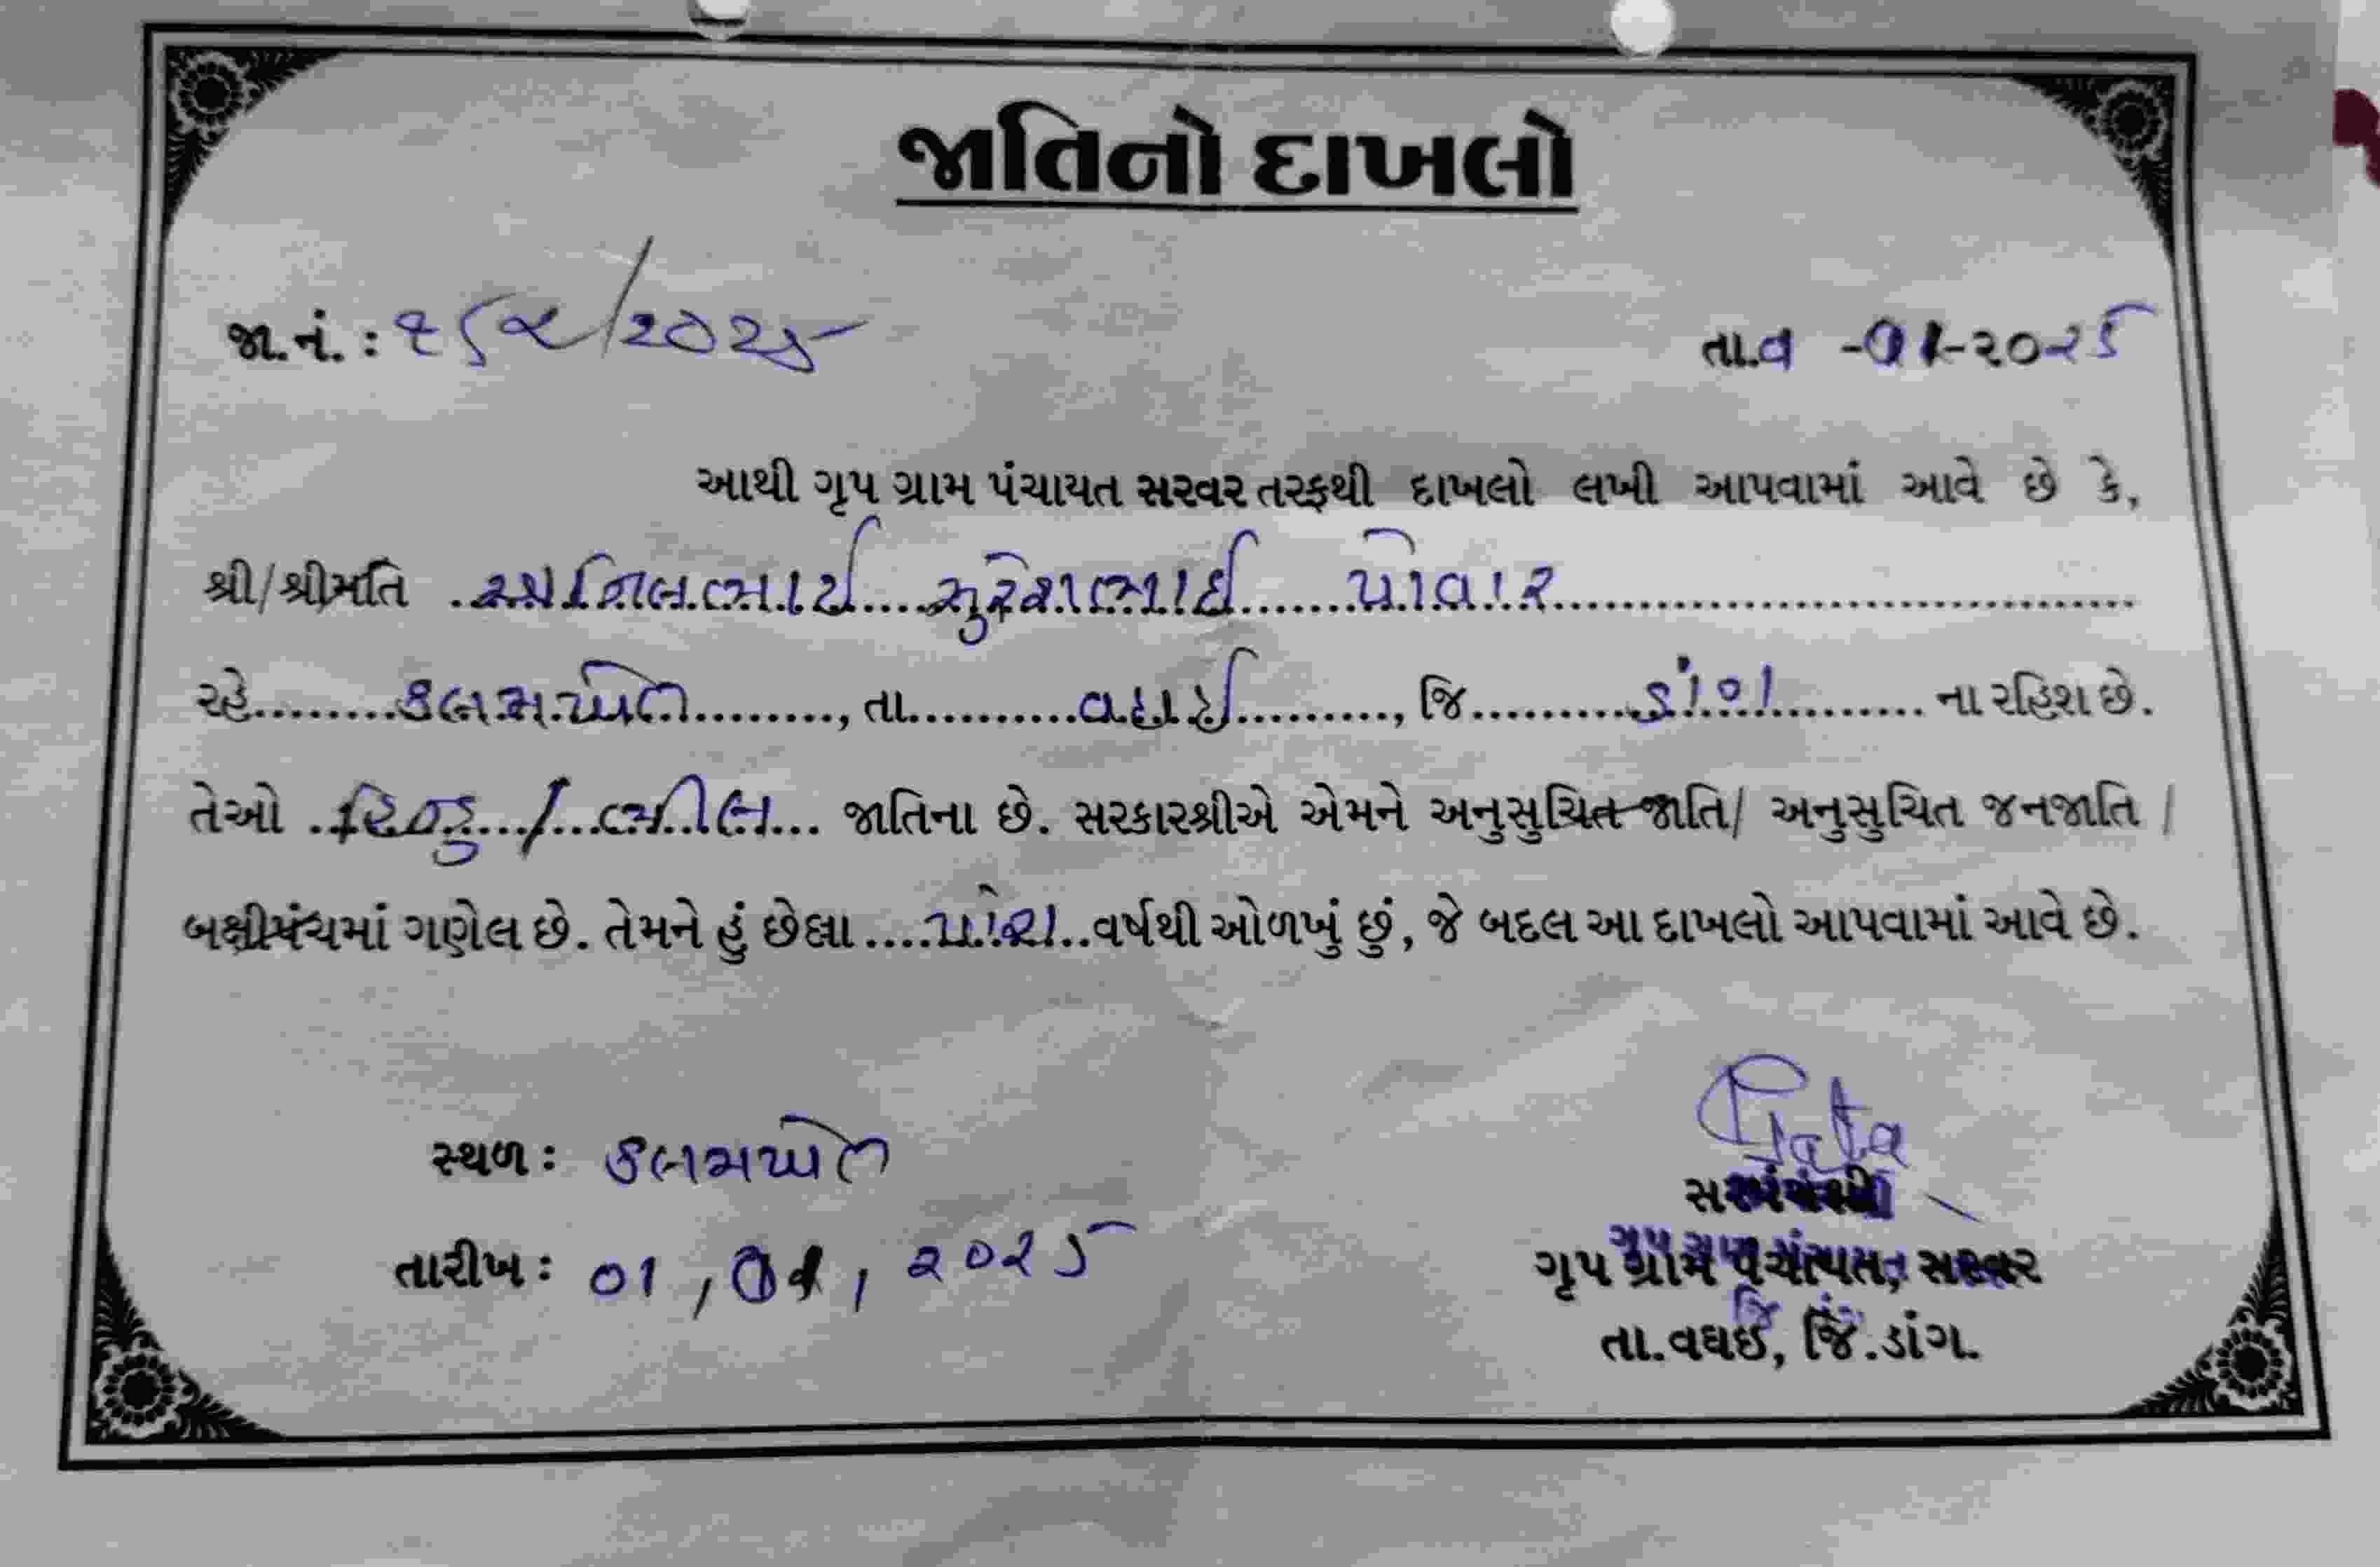 જાતિનો દાખલો
જા.નં. : ૧૬૫/૨૦૨૫ તા.૧ -૦૧-૨૦૨૫
આથી ગૃપ ગ્રામ પંચાયત સરવર તરફથી દાખલો લખી આપવામાં આવે છે કે,
શ્રી/શ્રીમતિ અનિલભાઈ સુરેશભાઈ પોવાર
રહે કલમખેત, તા વઘઈ, જિ ડાંગ ના રહિશ છે.
તેઓ હિન્દુ / ભીલ જાતિના છે. સરકારશ્રીએ એમને અનુસુચિત જાતિ/ અનુસુચિત જનજાતિ /
બક્ષીપંચમાં ગણેલ છે. તેમને હું છેલ્લા વર્ષથી ઓળખું છું, જે બદલ આ દાખલો આપવામાં આવે છે.
સ્થળ : કલમખેત
સરપંચશ્રી
તારીખ : ૦૧ / ૦૧ / ૨૦૨૫
ગૃપ ગ્રામ પંચાયત, સરવર
તા.વઘઈ, જિ.ડાંગ.